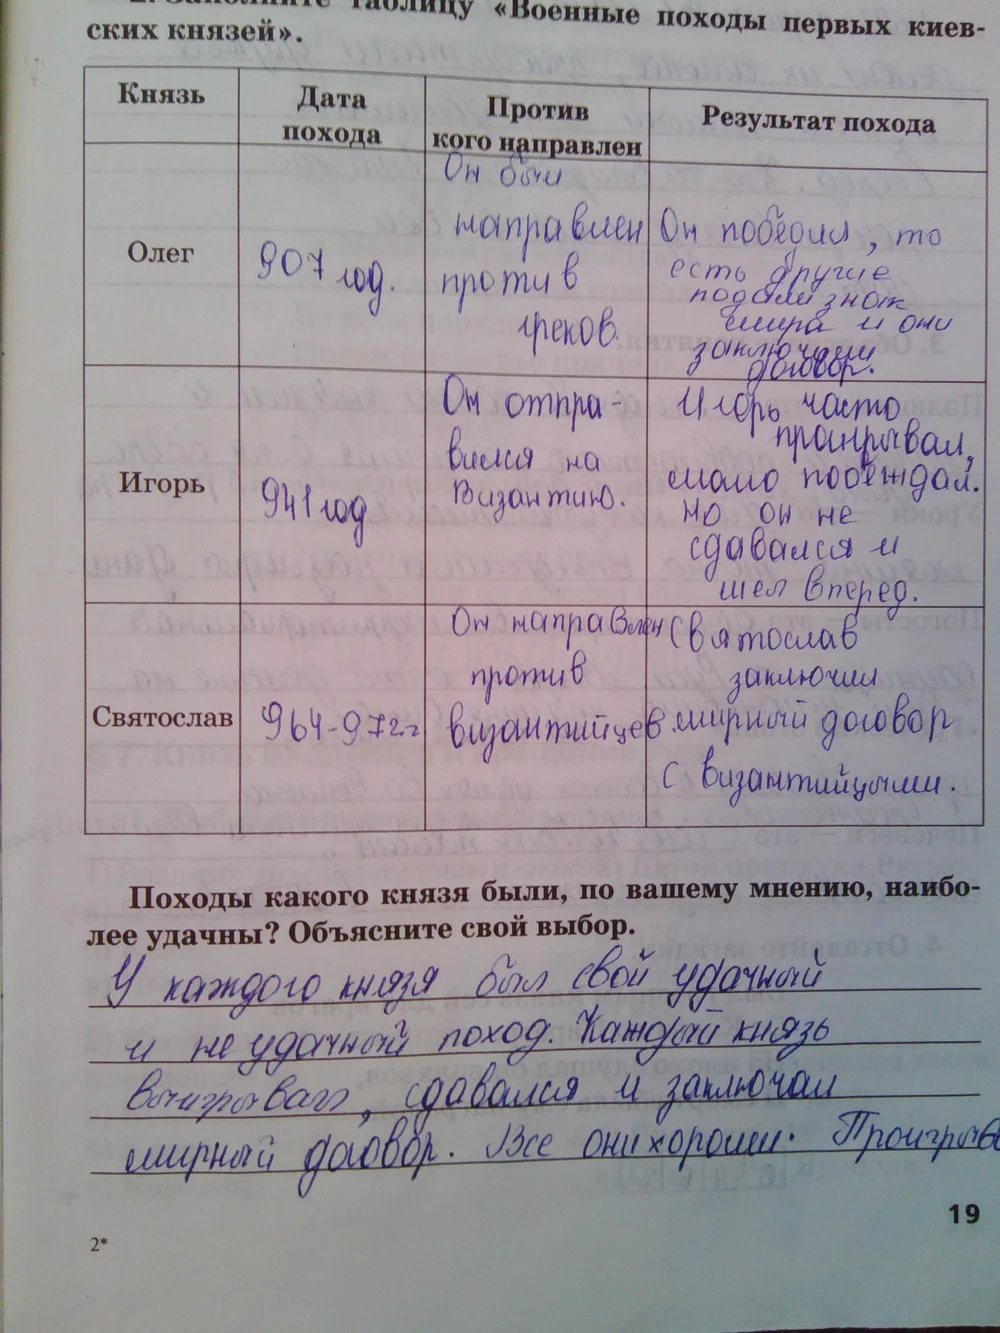 2. Заполните таблицу «Военные походы первых киев-
ских князей».
Князь
Дата
похода
Против
кого направлен
Результат похода
Олег
907 год.
Он был
направлен
против
греков.
Он победил, то
есть другие
подали знак
мира и они
заключили
договор.
Игорь
941 год
Он отпра-
вился на
Византию.
Игорь часто
проигрывал,
мало побеждал.
Но он не
сдавался и
шел вперед.
Святослав
964-972 г.
Он направлен
против
византийцев.
Святослав
заключил
мирный договор
с византийцыми.
Походы какого князя были, по вашему мнению, наибо-
лее удачны? Объясните свой выбор.
У каждого князя был свой удачный
и не удачный поход. Каждый князь
выигрывал, сдавался и заключал
мирный договор. Все они хороши. Проигрыв
19
2*